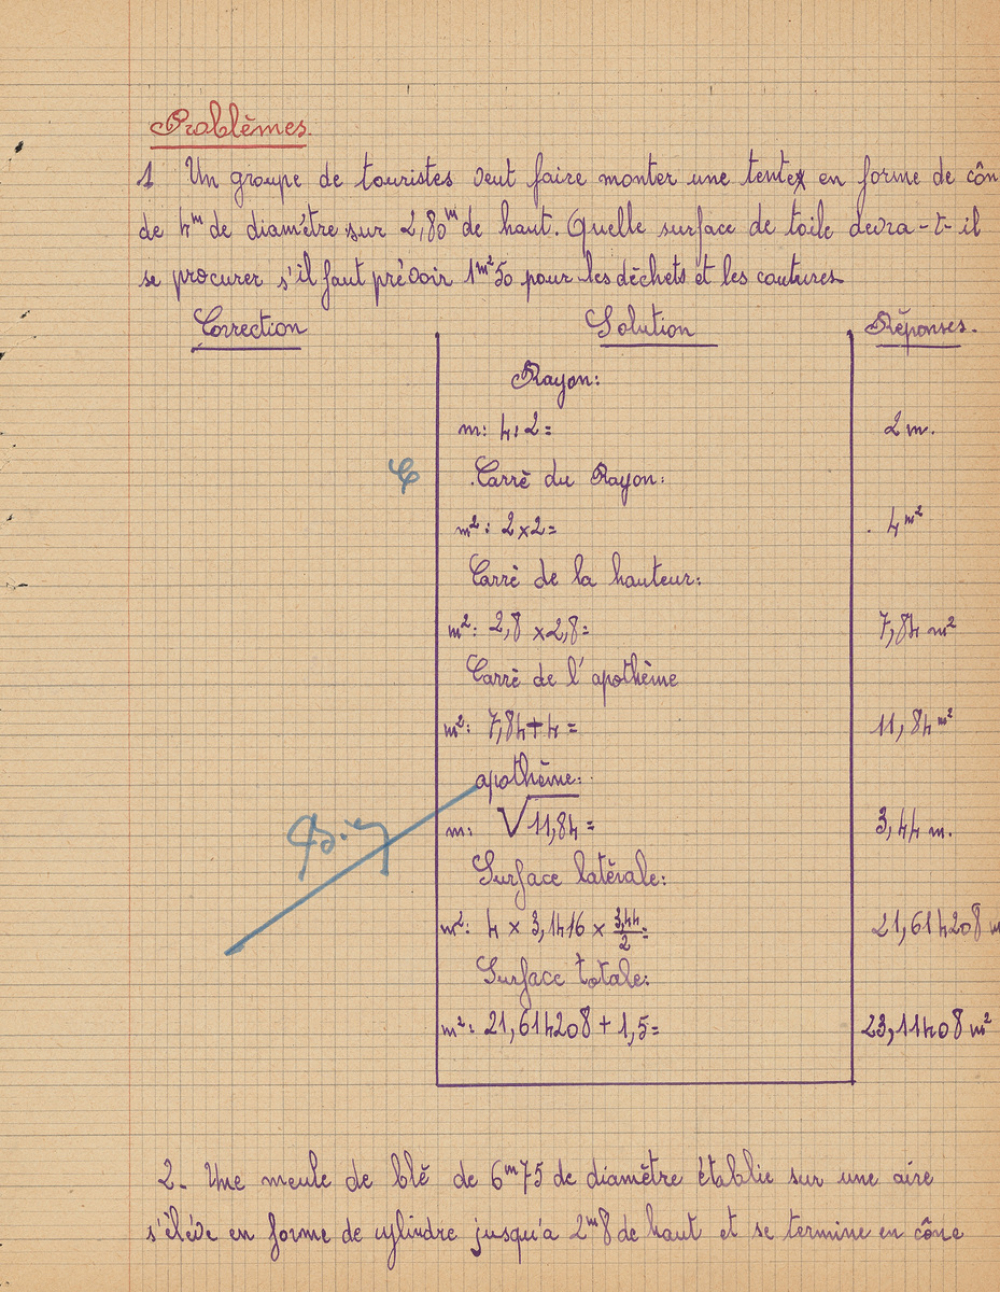 Problèmes.
1 Un groupe de touristes veut faire monter une tente en forme de côn
de 4m de diamètre sur 2,80m de haut. Quelle surface de toile devra-t-il
se procurer s'il faut prévoir 1m²50 pour les déchets et les coutures
Correction Solution Réponses.
Rayon:
m: 4:2= 2 m.
Carré du Rayon:
m²: 2×2= 4m²
Carré de la hauteur:
m²: 2,8 ×2,8= 7,84 m²
Carré de l'apothème
m²: 7,84+4= 11,84m²
apothème:
m: √11,84= 3,44 m.
Surface latérale:
m²: 4 × 3,1416 × 3,44/2= 21,614208 m
Surface totale:
m²: 21,614208 + 1,5= 23,11408 m²
2- Une meule de blé de 6m75 de diamètre établie sur une aire
s'élève en forme de cylindre jusqu'à 2m8 de haut et se termine en cône